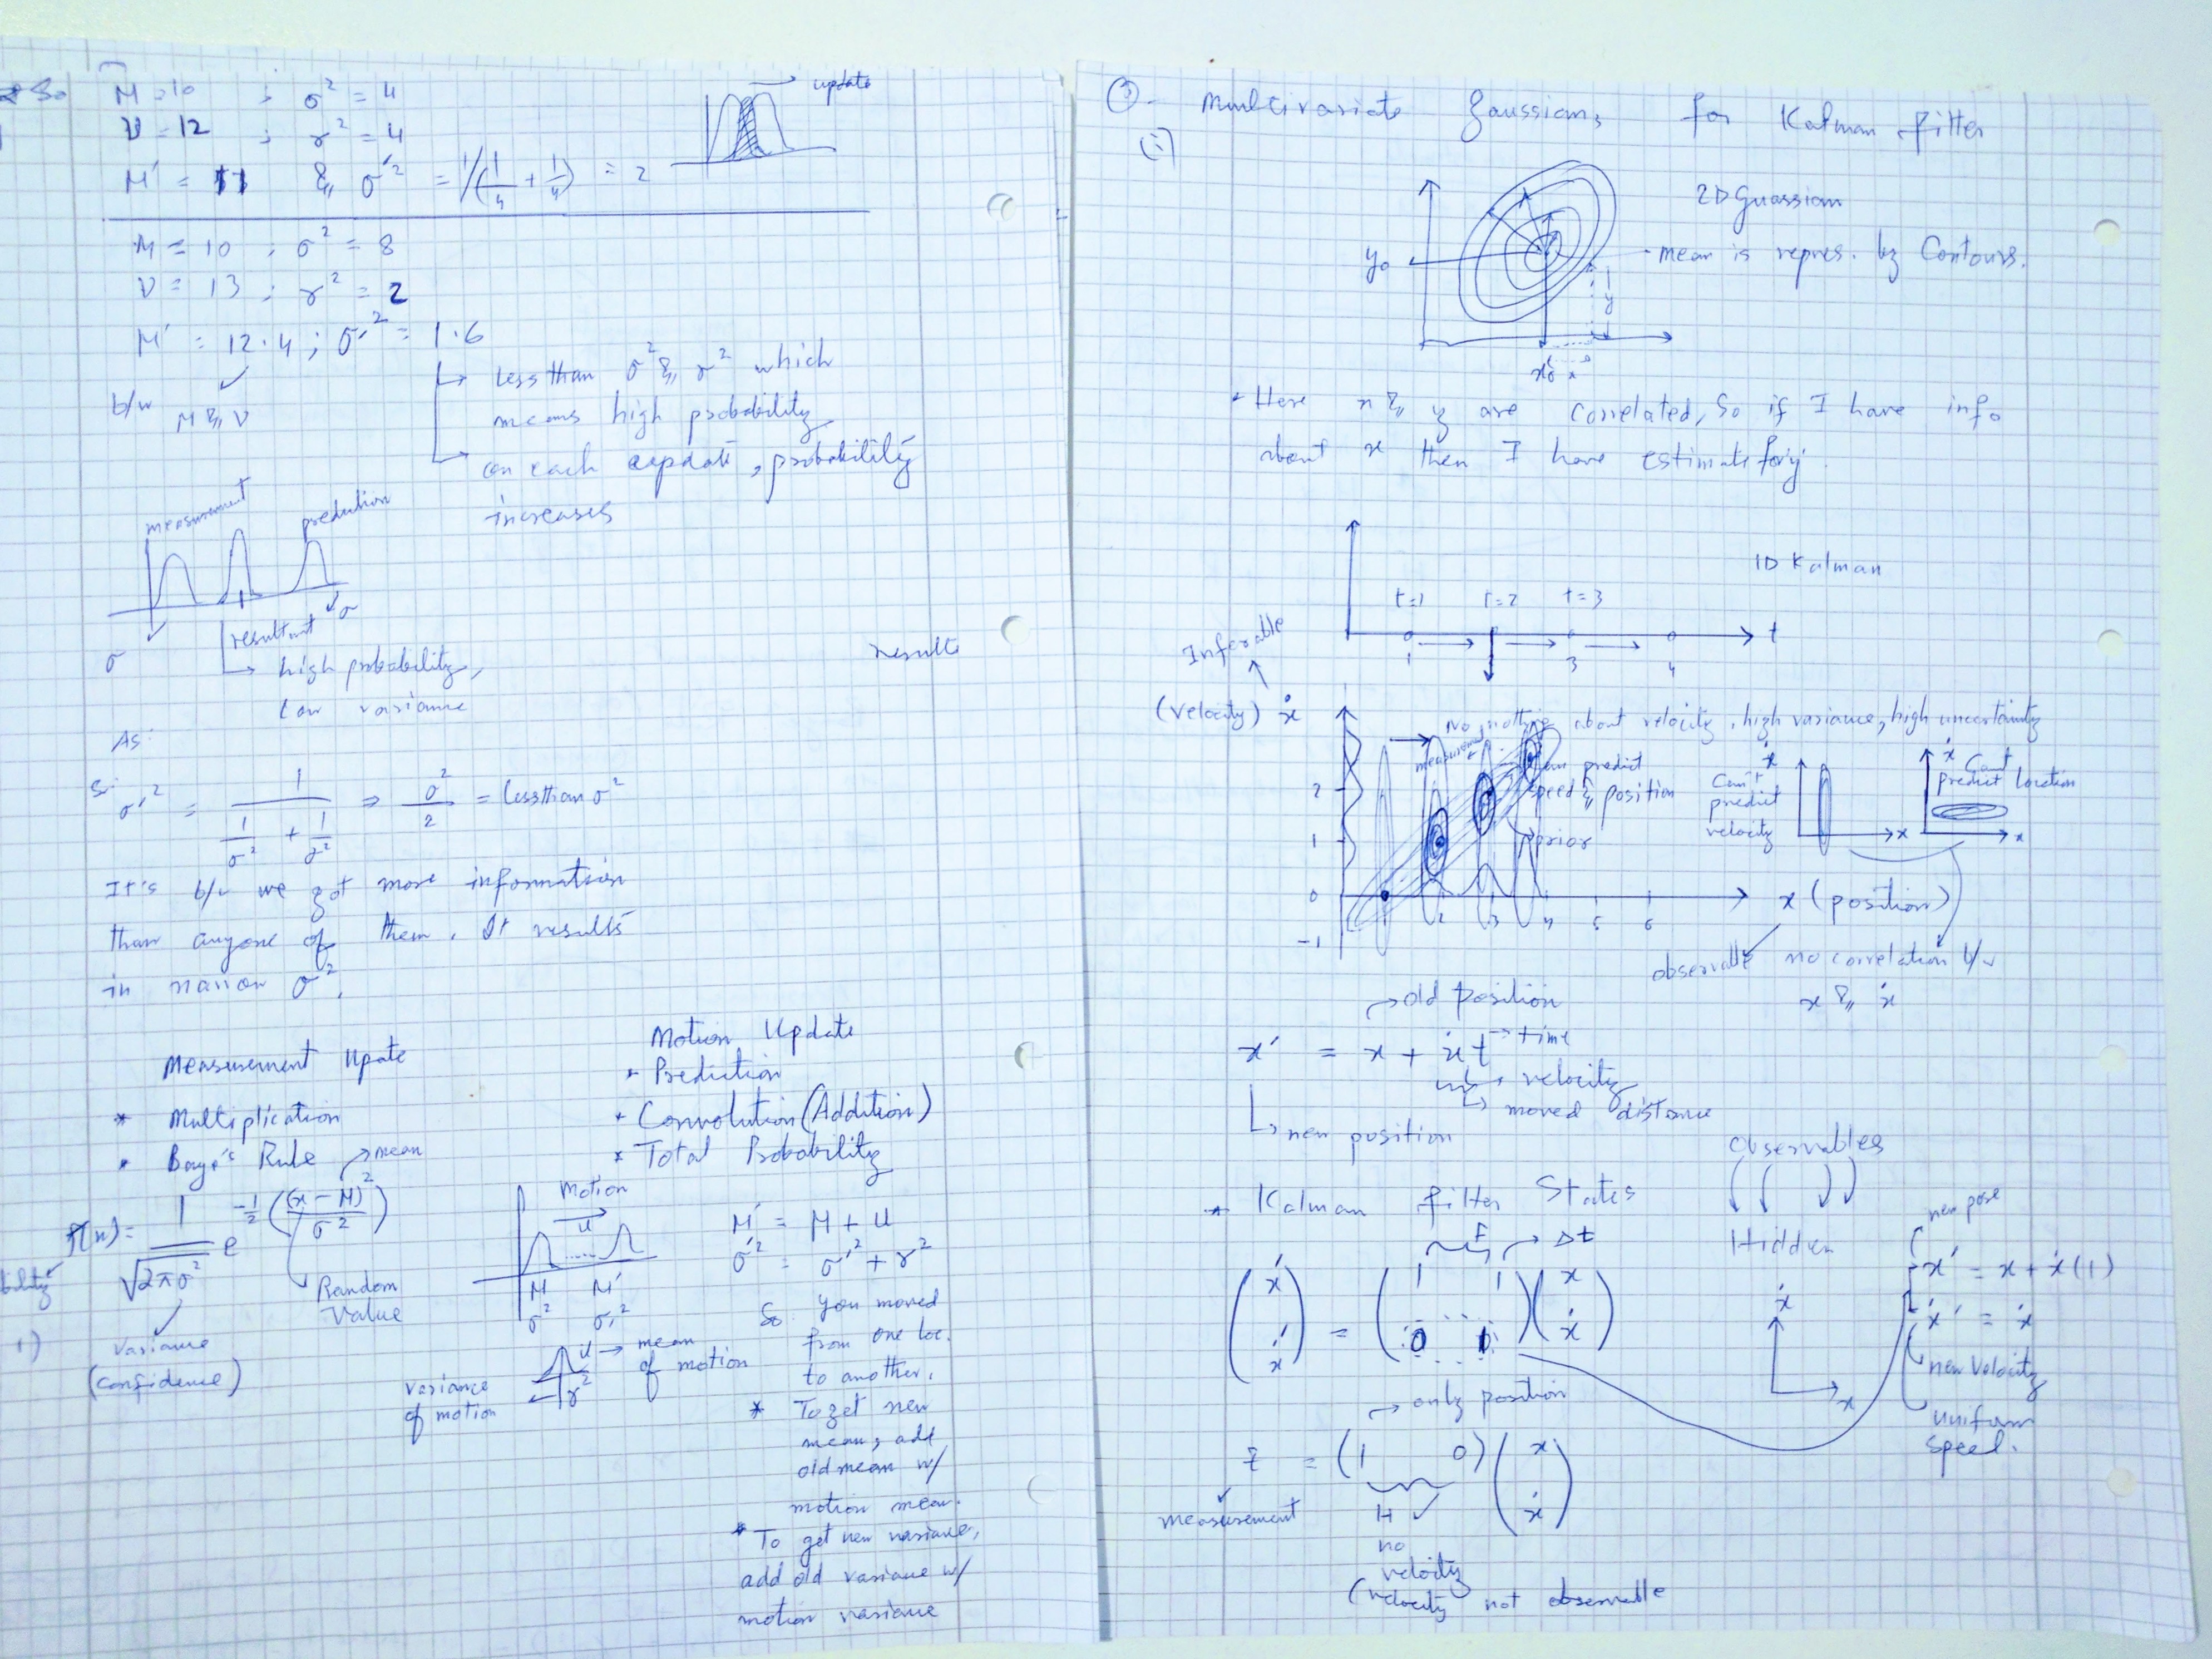 So M = 10 ; σ² = 4
ν = 12 ; r² = 4
M' = 11 & σ'² = 1/(1/4 + 1/4) = 2
update
M = 10 ; σ² = 8
ν = 13 ; r² = 2
M' = 12.4 ; σ'² = 1.6
b/w M & ν
Less than σ² & r² which
means high probability
on each update, probability
increases
measurement
prediction
σ
σ
resultant
high probability,
Low variance
results
As:
σ'² = 1/(1/σ² + 1/σ²) ⇒ σ²/2 = less than σ²
It's b/c we got more information
than anyone of them. It results
in narrow σ².
Measurement Upate
* Multiplication
* Baye's Rule
mean
f(x) = 1/√2πσ² e -1/2 ((x - M)²/σ²)
bility
Random
Value
1)
Variance
(Confidence)
Motion Update
* Prediction
* Convolution (Addition)
* Total Probability
Motion
u
M M'
σ² σ'²
M' = M + u
σ'² = σ'² + r²
u → mean
of motion
r²
variance
of motion
So you moved
from one loc.
to another.
* To get new
mean, add
old mean w/
motion mean.
* To get new variance,
add old variance w/
motion variance
③. Multivariate Gaussians for Kalman Filter
(i)
2D Guassian
y₀
- mean is repres. by Contours.
y
x₀
* Here x & y are correlated, So if I have info
about x then I have estimate for y.
1D Kalman
t=1 t=2 t=3
t
1 3 4
Inferable
(velocity) ẋ
No nothing about velocity, high variance, high uncertainty
measurement
can predict
speed & position
prior
2
1
0
-1
2 3 4 5 6
x (position)
Can't
predict
velocity
ẋ
x
ẋ Cant
predict location
x
observable
no correlation b/w
x & ẋ
old position
x' = x + ẋt → time
velocity
moved distance
new position
* Kalman Filter States
Observables
Hidden
F
Δt
(x' ẋ') = (1 1 0 1)(x ẋ)
ẋ
x
new pose
x' = x + ẋ(1)
ẋ' = ẋ
new velocity
uniform
speed.
only position
z = (1 0)(x ẋ)
measurement
H
no
velocity
(velocity not observable